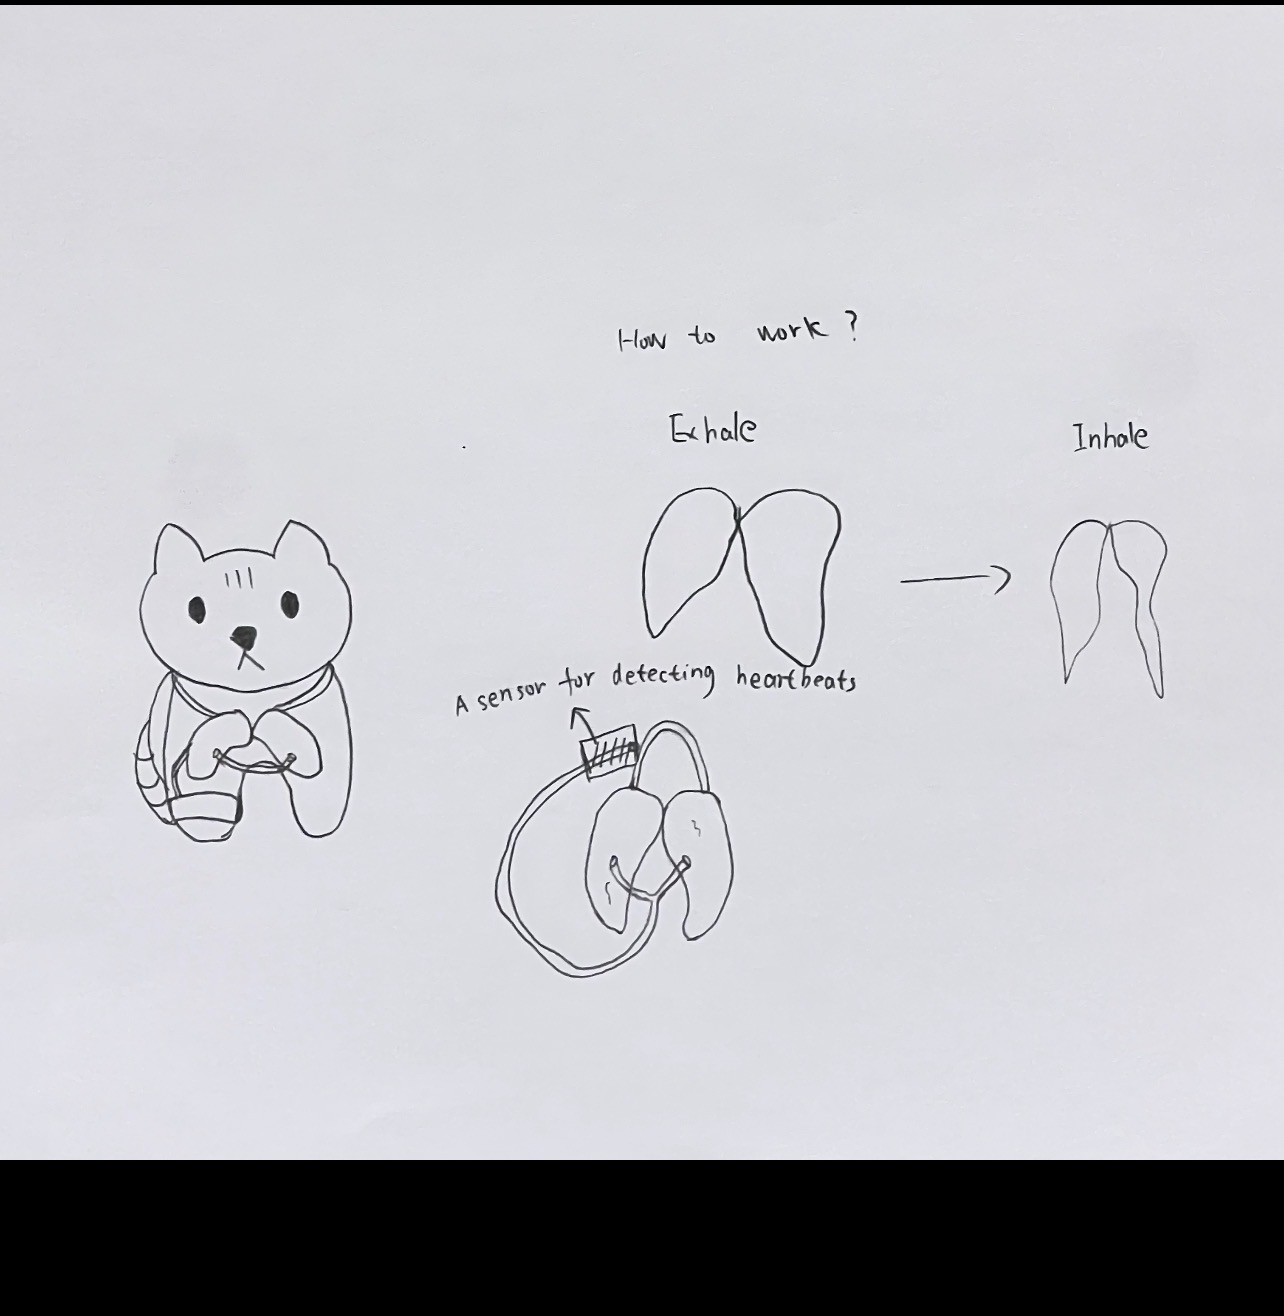 How to work ?
Exhale
Inhale
A sensor for detecting heartbeats